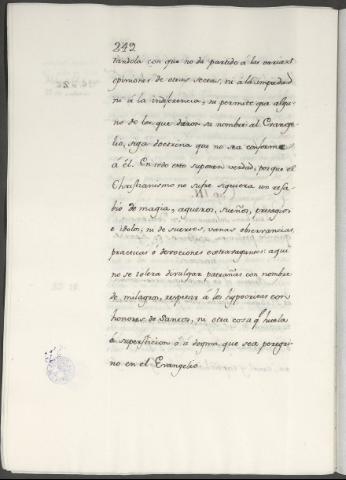 242
tandola con que no da partido á las varias
opiniones de otras sectas, ni á la impiedad
ni á la indiferencia, ni permite que algu-
no de los que dieron su nombre al Evange-
lio, siga doctrina que no sea conforme
á él. En todo esto suponen verdad, porque el
Christianismo no sufre siquiera un resa-
bio de magia, agueros, sueños, presagios
e idolos; ni de suertes, vanas observancias
practicas ó devociones extravagantes: aqui
no se tolera divulgar patrañas con nombre
de milagros, respetar á los hypocritas con
honores de Santos, ni otra cosa q.e huela
á supersticion ó á dogma que sea peregri-
no en el Evangelio